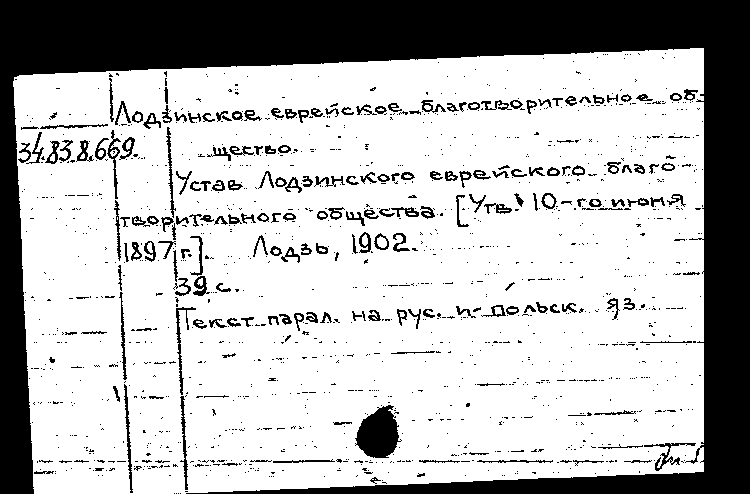 Лодзинское еврейское благотворительное об-
34.83.8.669.
щество.
Устав Лодзинского еврейского благо-
творительного общества. [Утв. 10-го июня
1897 г.]. Лодзь, 1902.
39 с.
Текст парал. на рус. и польск. яз.